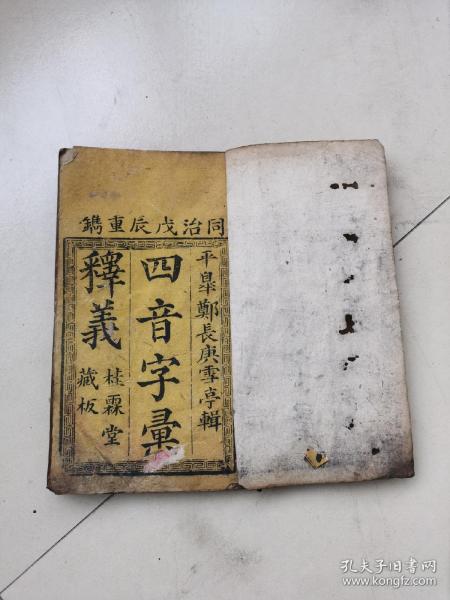 同治戊辰重鐫
平皋鄭長庚雪亭輯
四音字彙
釋義
桂霖堂
藏板
孔夫子旧书网
www.kongfz.com